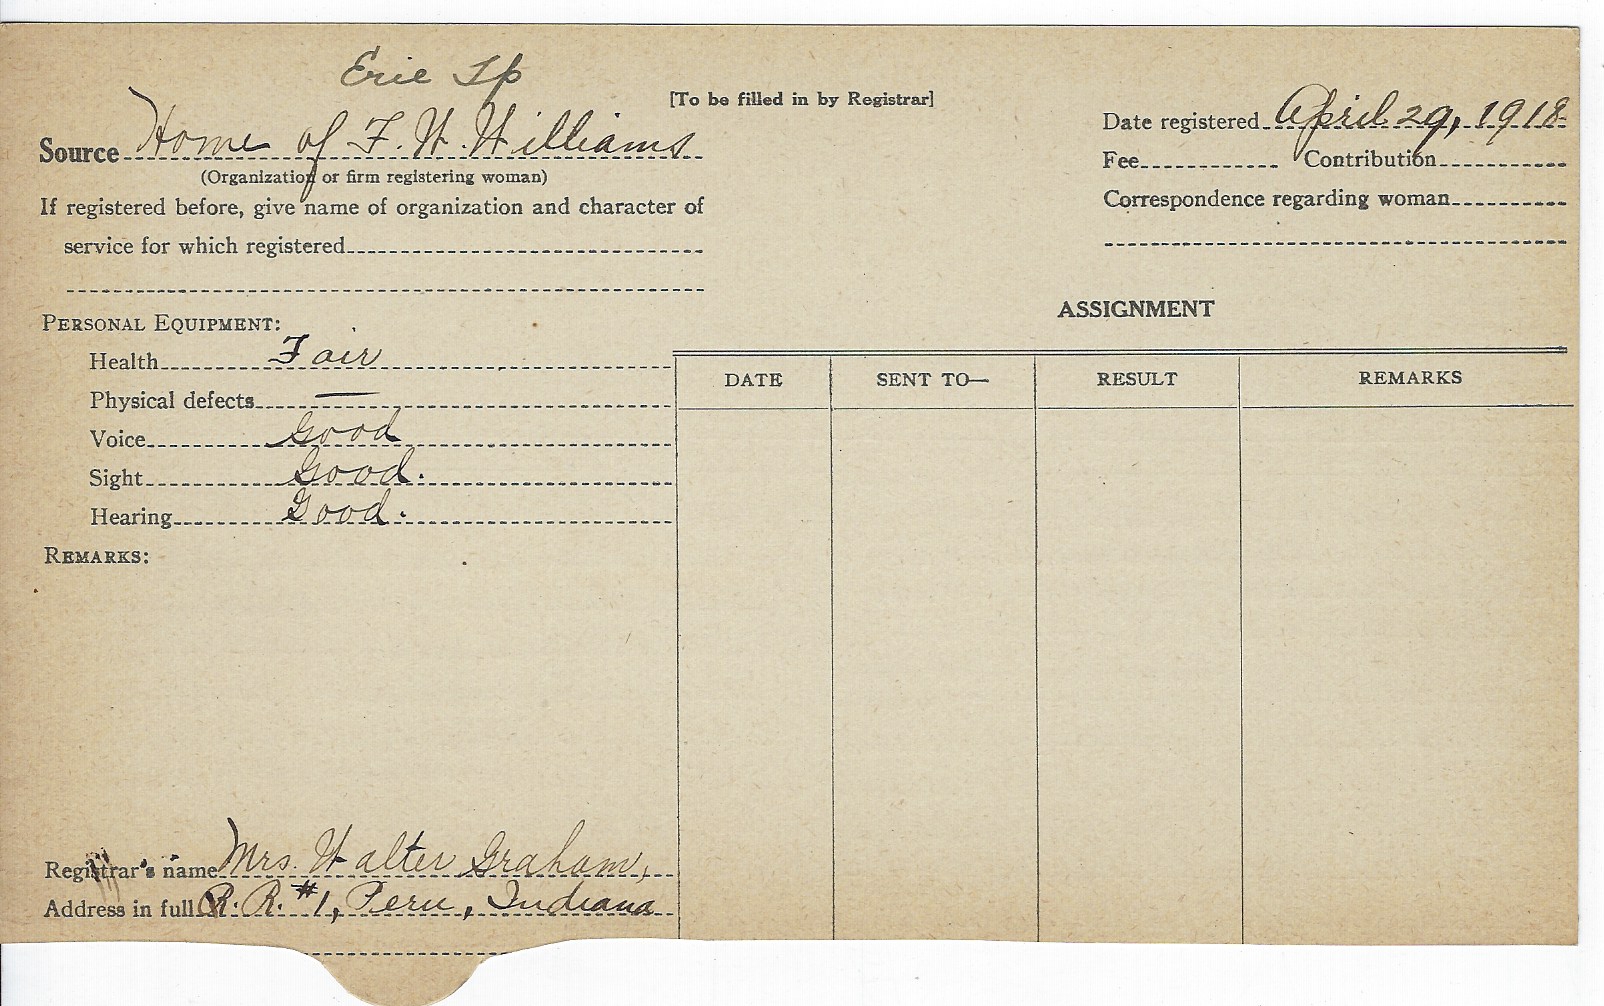 Erie Tp
[To be filled in by Registrar]
Date registered April 29, 1918
Source Home of F. W. Williams
(Organization or firm registering woman)
Fee Contribution
If registered before, give name of organization and character of
Correspondence regarding woman
service for which registered
ASSIGNMENT
PERSONAL EQUIPMENT:
Health Fair
DATE SENT TO— RESULT REMARKS
Physical defects —
Voice Good
Sight Good.
Hearing Good.
REMARKS:
Registrar's name Mrs. Walter Graham,
Address in full R. R. #1, Peru, Indiana